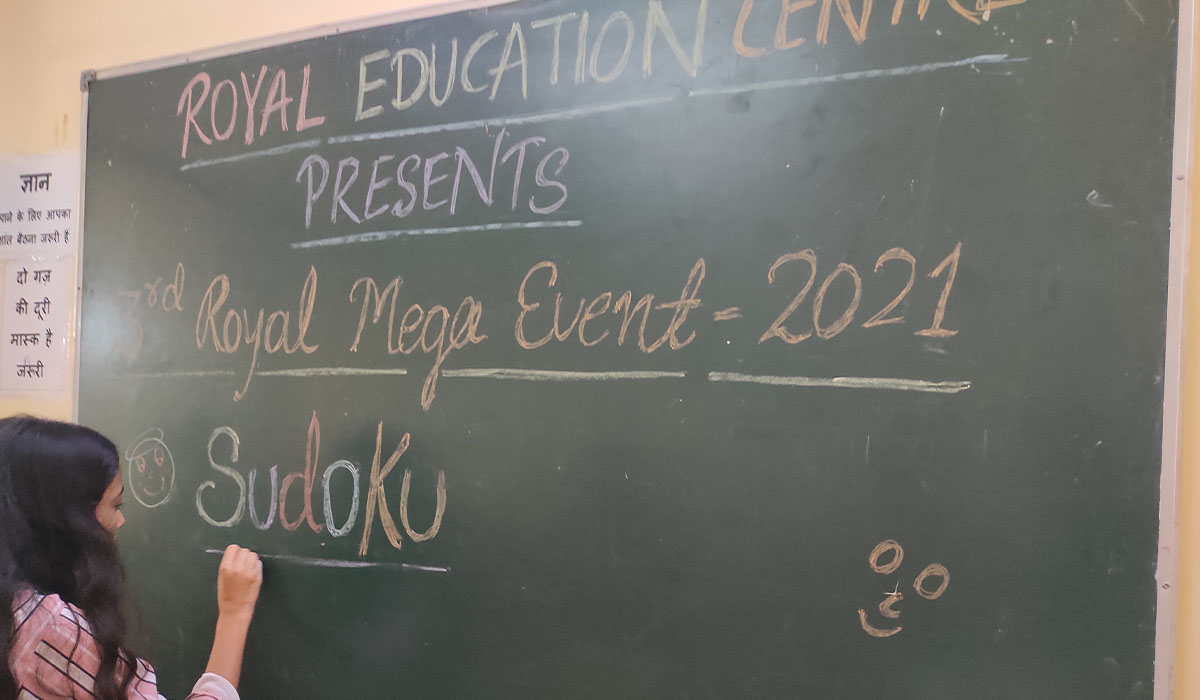 ROYAL EDUCATION CENTRE
PRESENTS
3rd Royal Mega Event = 2021
Sudoku
ज्ञान
पाने के लिए आपका
शांत बैठना जरुरी है
दो गज़
की दूरी
मास्क है
जरुरी